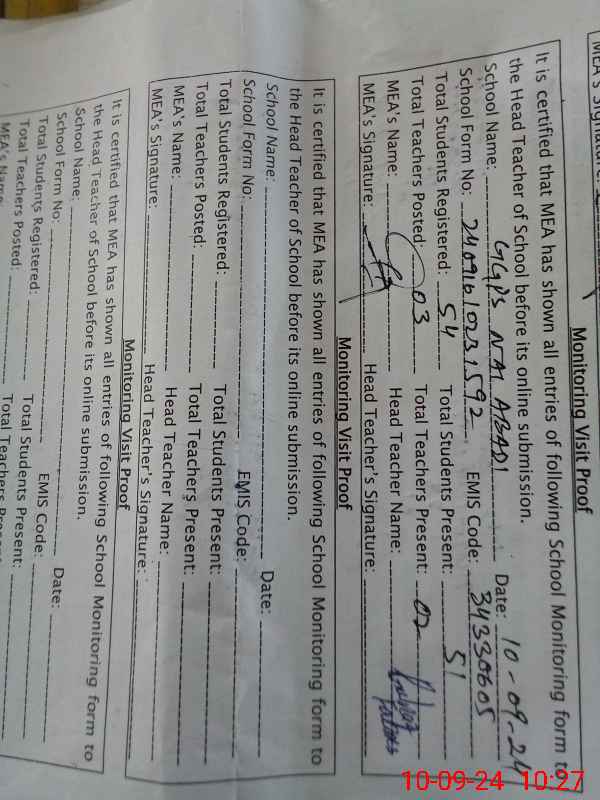 MEA's Signature:
Monitoring Visit Proof
It is certified that MEA has shown all entries of following School Monitoring form to
the Head Teacher of School before its online submission.
School Name: GGPS NAI ABADI Date: 10-09-24
School Form No: EMIS Code: 34330605
Total Students Registered: 54 Total Students Present: 51
Total Teachers Posted: 03 Total Teachers Present: 02
MEA's Name: Head Teacher Name:
MEA's Signature: Head Teacher's Signature:
Monitoring Visit Proof
It is certified that MEA has shown all entries of following School Monitoring form to
the Head Teacher of School before its online submission.
School Name: Date:
School Form No: EMIS Code:
Total Students Registered: Total Students Present:
Total Teachers Posted: Total Teachers Present:
MEA's Name: Head Teacher Name:
MEA's Signature: Head Teacher's Signature:
Monitoring Visit Proof
It is certified that MEA has shown all entries of following School Monitoring form to
the Head Teacher of School before its online submission.
School Name: Date:
School Form No: EMIS Code:
Total Students Registered: Total Students Present:
Total Teachers Posted: Total Teachers Present:
MEA's Name:
10-09-24 10:27